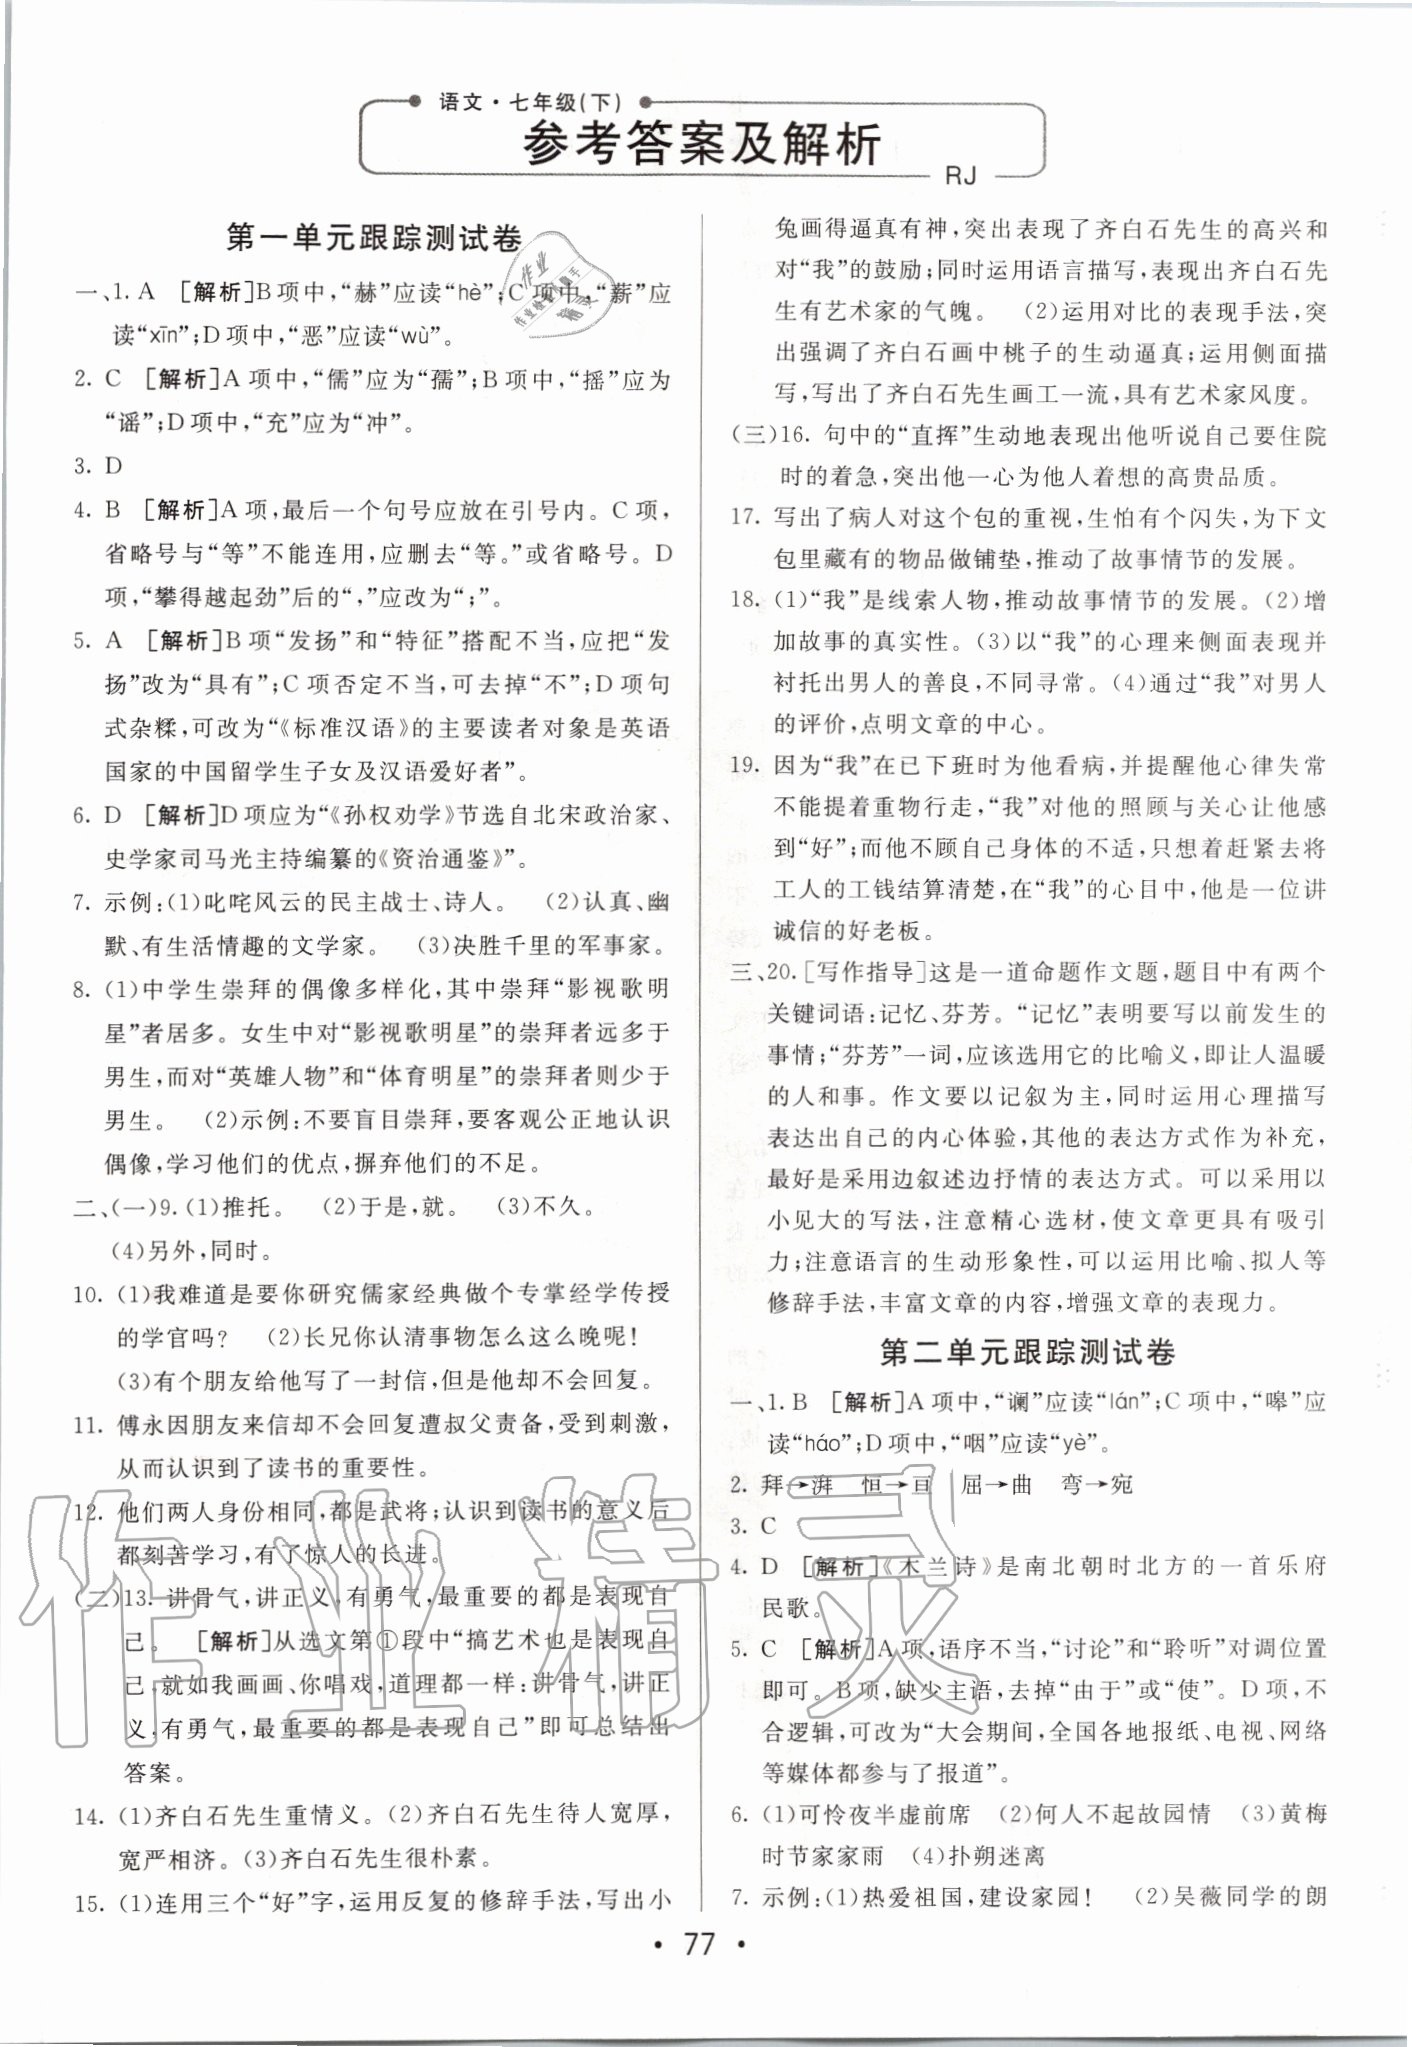 语文·七年级(下)
参考答案及解析
RJ
第一单元跟踪测试卷
一、1. A [解析]B项中,“赫”应读“hè”;C项中,“薪”应
读“xīn”;D项中,“恶”应读“wù”。
2. C [解析]A项中,“儒”应为“孺”;B项中,“摇”应为
“谣”;D项中,“充”应为“冲”。
3. D
4. B [解析]A项,最后一个句号应放在引号内。C项,
省略号与“等”不能连用,应删去“等。”或省略号。D
项,“攀得越起劲”后的“,”应改为“;”。
5. A [解析]B项“发扬”和“特征”搭配不当,应把“发
扬”改为“具有”;C项否定不当,可去掉“不”;D项句
式杂糅,可改为“《标准汉语》的主要读者对象是英语
国家的中国留学生子女及汉语爱好者”。
6. D [解析]D项应为“《孙权劝学》节选自北宋政治家、
史学家司马光主持编纂的《资治通鉴》”。
7. 示例:(1)叱咤风云的民主战士、诗人。 (2)认真、幽
默、有生活情趣的文学家。 (3)决胜千里的军事家。
8. (1)中学生崇拜的偶像多样化,其中崇拜“影视歌明
星”者居多。女生中对“影视歌明星”的崇拜者远多于
男生,而对“英雄人物”和“体育明星”的崇拜者则少于
男生。 (2)示例:不要盲目崇拜,要客观公正地认识
偶像,学习他们的优点,摒弃他们的不足。
二、(一)9. (1)推托。 (2)于是,就。 (3)不久。
(4)另外,同时。
10. (1)我难道是要你研究儒家经典做个专掌经学传授
的学官吗? (2)长兄你认清事物怎么这么晚呢!
(3)有个朋友给他写了一封信,但是他却不会回复。
11. 傅永因朋友来信却不会回复遭叔父责备,受到刺激,
从而认识到了读书的重要性。
12. 他们两人身份相同,都是武将;认识到读书的意义后
都刻苦学习,有了惊人的长进。
(二)13. 讲骨气,讲正义,有勇气,最重要的是表现自
己。 [解析]从选文第①段中“搞艺术也是表现自
己,就如我画画、你唱戏,道理都一样:讲骨气,讲正
义,有勇气,最重要的都是表现自己”即可总结出
答案。
14. (1)齐白石先生重情义。(2)齐白石先生待人宽厚,
宽严相济。(3)齐白石先生很朴素。
15. (1)连用三个“好”字,运用反复的修辞手法,写出小
兔画得逼真有神,突出表现了齐白石先生的高兴和
对“我”的鼓励;同时运用语言描写,表现出齐白石先
生有艺术家的气魄。 (2)运用对比的表现手法,突
出强调了齐白石画中桃子的生动逼真;运用侧面描
写,写出了齐白石先生画工一流,具有艺术家风度。
(三)16. 句中的“直挥”生动地表现出他听说自己要住院
时的着急,突出他一心为他人着想的高贵品质。
17. 写出了病人对这个包的重视,生怕有个闪失,为下文
包里藏有的物品做铺垫,推动了故事情节的发展。
18. (1)“我”是线索人物,推动故事情节的发展。(2)增
加故事的真实性。(3)以“我”的心理来侧面表现并
衬托出男人的善良,不同寻常。(4)通过“我”对男人
的评价,点明文章的中心。
19. 因为“我”在已下班时为他看病,并提醒他心律失常
不能提着重物行走,“我”对他的照顾与关心让他感
到“好”;而他不顾自己身体的不适,只想着赶紧去将
工人的工钱结算清楚,在“我”的心目中,他是一位讲
诚信的好老板。
三、20. [写作指导]这是一道命题作文题,题目中有两个
关键词语:记忆、芬芳。“记忆”表明要写以前发生的
事情;“芬芳”一词,应该选用它的比喻义,即让人温暖
的人和事。作文要以记叙为主,同时运用心理描写
表达出自己的内心体验,其他的表达方式作为补充,
最好是采用边叙述边抒情的表达方式。可以采用以
小见大的写法,注意精心选材,使文章更具有吸引
力;注意语言的生动形象性,可以运用比喻、拟人等
修辞手法,丰富文章的内容,增强文章的表现力。
第二单元跟踪测试卷
一、1. B [解析]A项中,“谰”应读“lán”;C项中,“嗥”应
读“háo”;D项中,“咽”应读“yè”。
2. 拜→湃 恒→亘 屈→曲 弯→宛
3. C
4. D [解析]《木兰诗》是南北朝时北方的一首乐府
民歌。
5. C [解析]A项,语序不当,“讨论”和“聆听”对调位置
即可。B项,缺少主语,去掉“由于”或“使”。D项,不
合逻辑,可改为“大会期间,全国各地报纸、电视、网络
等媒体都参与了报道”。
6. (1)可怜夜半虚前席 (2)何人不起故园情 (3)黄梅
时节家家雨 (4)扑朔迷离
7. 示例:(1)热爱祖国,建设家园! (2)吴薇同学的朗
· 77 ·
作业精灵